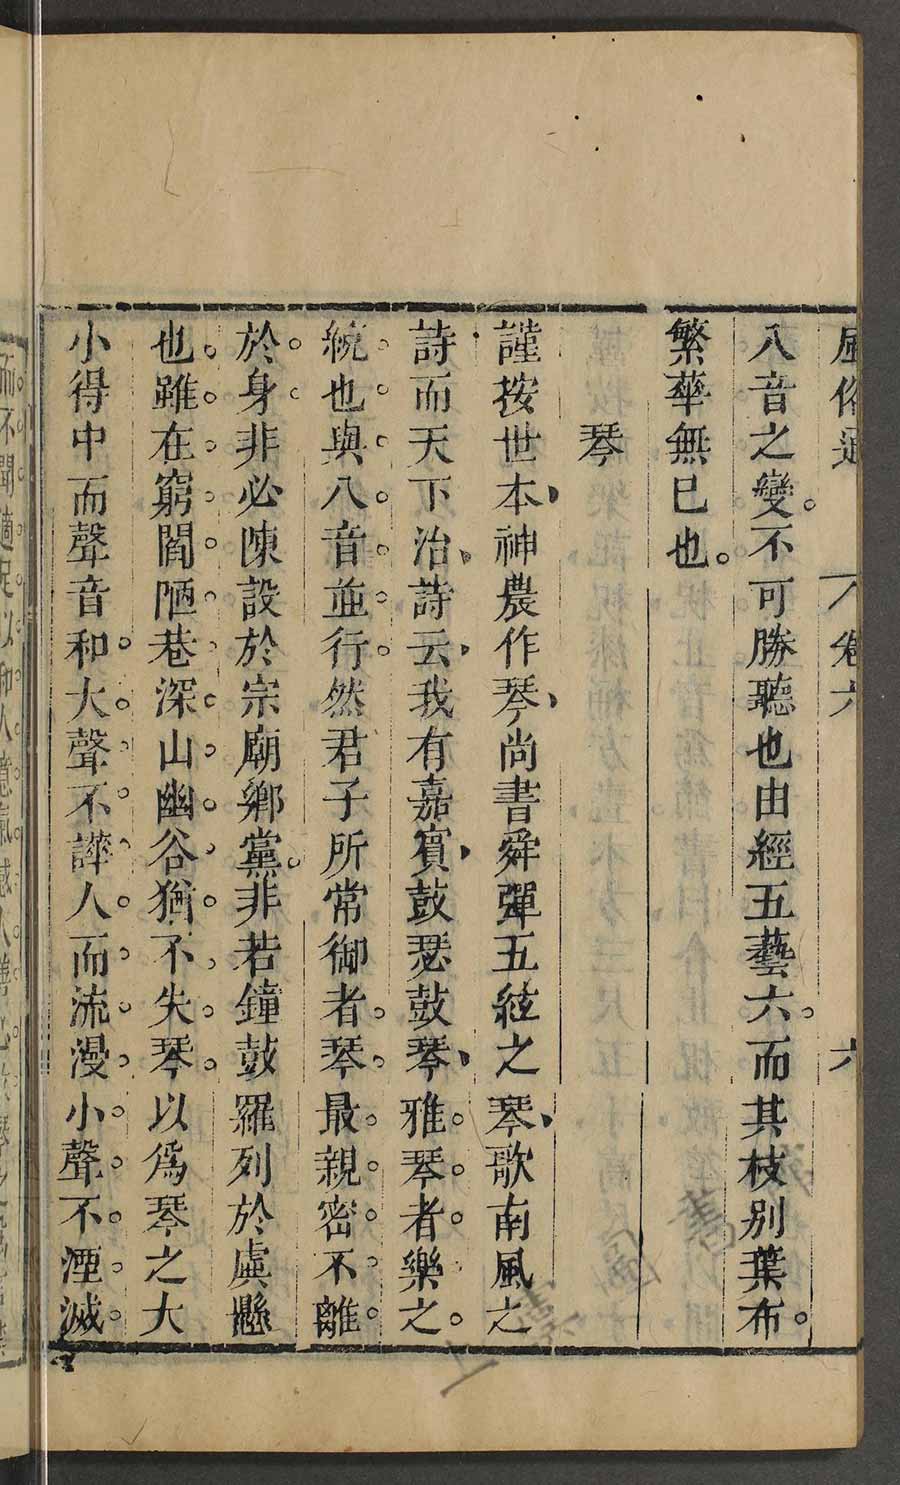 風俗通 卷六 六
八音之變。不可勝聽也由經五藝六。而其枝別葉布。
繁華無已也。
琴
謹按世本、神農作琴、尚書舜彈五絃之琴、歌南風之
詩而天下治、詩云、我有嘉賓、鼓瑟鼓琴、雅琴者樂之
統也與八音並行然君子所常御者琴最親密不離
於身非必陳設於宗廟鄉黨。非若鐘鼓羅列於虡懸
也雖在窮閻陋巷深山幽谷猶不失琴以爲琴之大
小得中而聲音和大聲不譁人而流漫小聲不湮滅